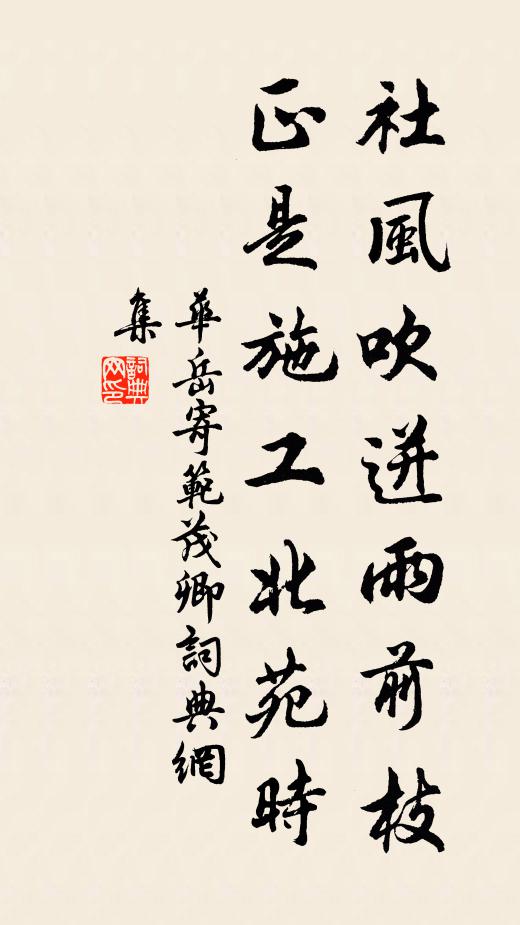 社風吹迸雨前枝
正是施工北苑時
華岳寄範茂卿詞典網
集
詞典網印